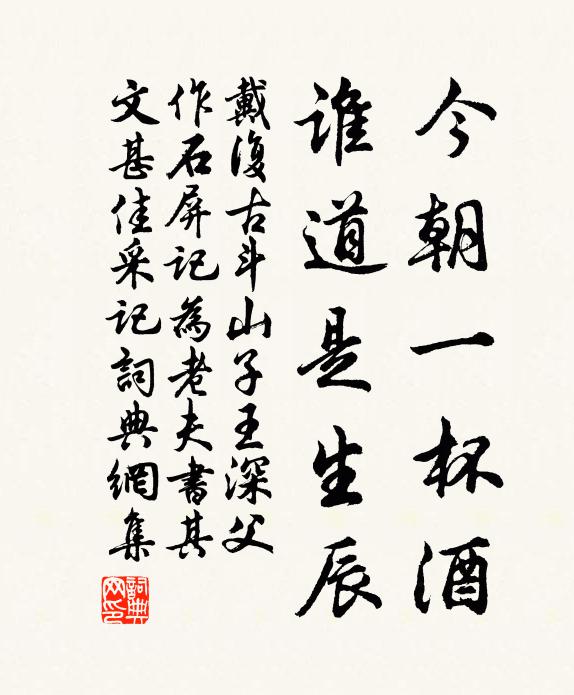 今朝一杯酒
誰道是生辰
戴復古斗山子王深父
作石屏記為老夫書其
文甚佳采記詞典網集
詞典網印